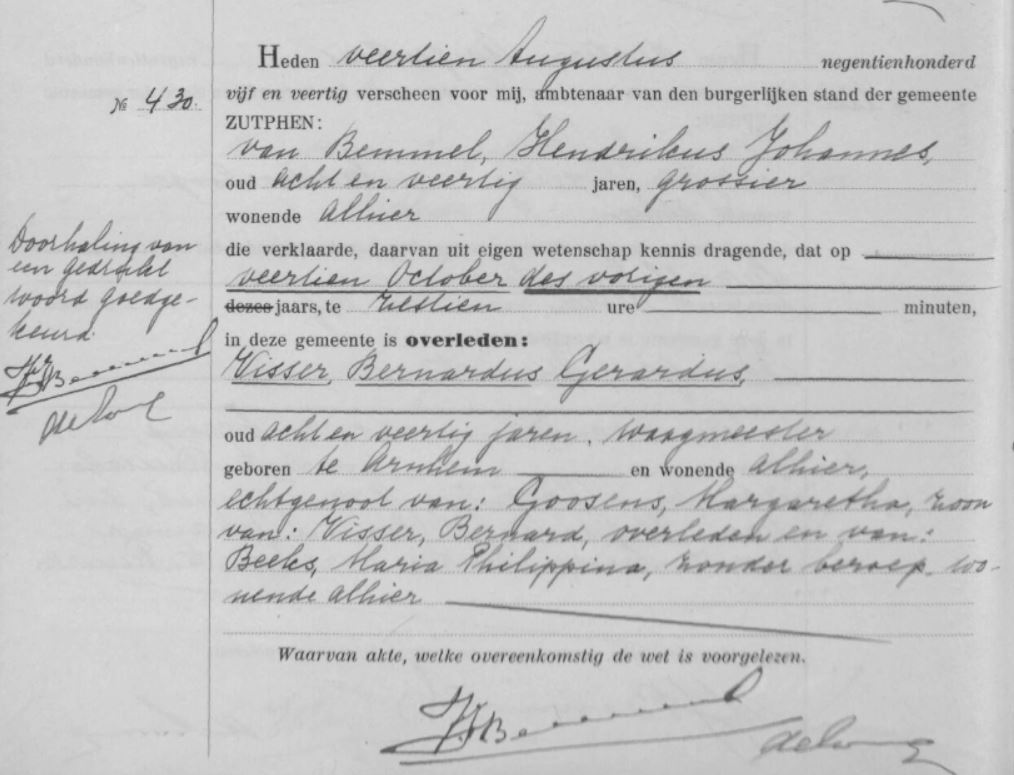 Heden veertien Augustus negentienhonderd
№ 430.
vijf en veertig verscheen voor mij, ambtenaar van den burgerlijken stand der gemeente
ZUTPHEN:
van Bemmel, Hendrikus Johannes,
oud acht en veertig jaren, grossier
wonende alhier
die verklaarde, daarvan uit eigen wetenschap kennis dragende, dat op
veertien October des vorigen
dezes jaars, te zestien ure minuten,
in deze gemeente is overleden:
Visser, Bernardus Gerardus,
oud acht en veertig jaren, waagmeester
geboren te Arnhem en wonende alhier,
echtgenoot van: Goosens, Margaretha, zoon
van: Visser, Bernard, overleden en van:
Beeks, Maria Philippina, zonder beroep, wo-
nende alhier
Waarvan akte, welke overeenkomstig de wet is voorgelezen.
Doorhaling van
een gedrukt
woord goedge-
keurd.